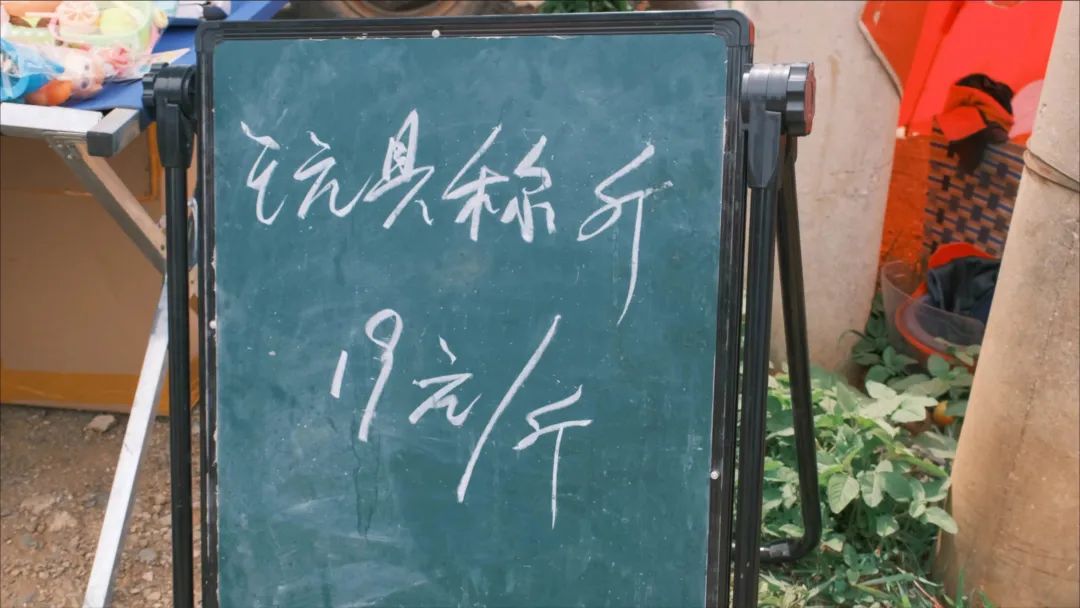 玩具称斤
19元/斤